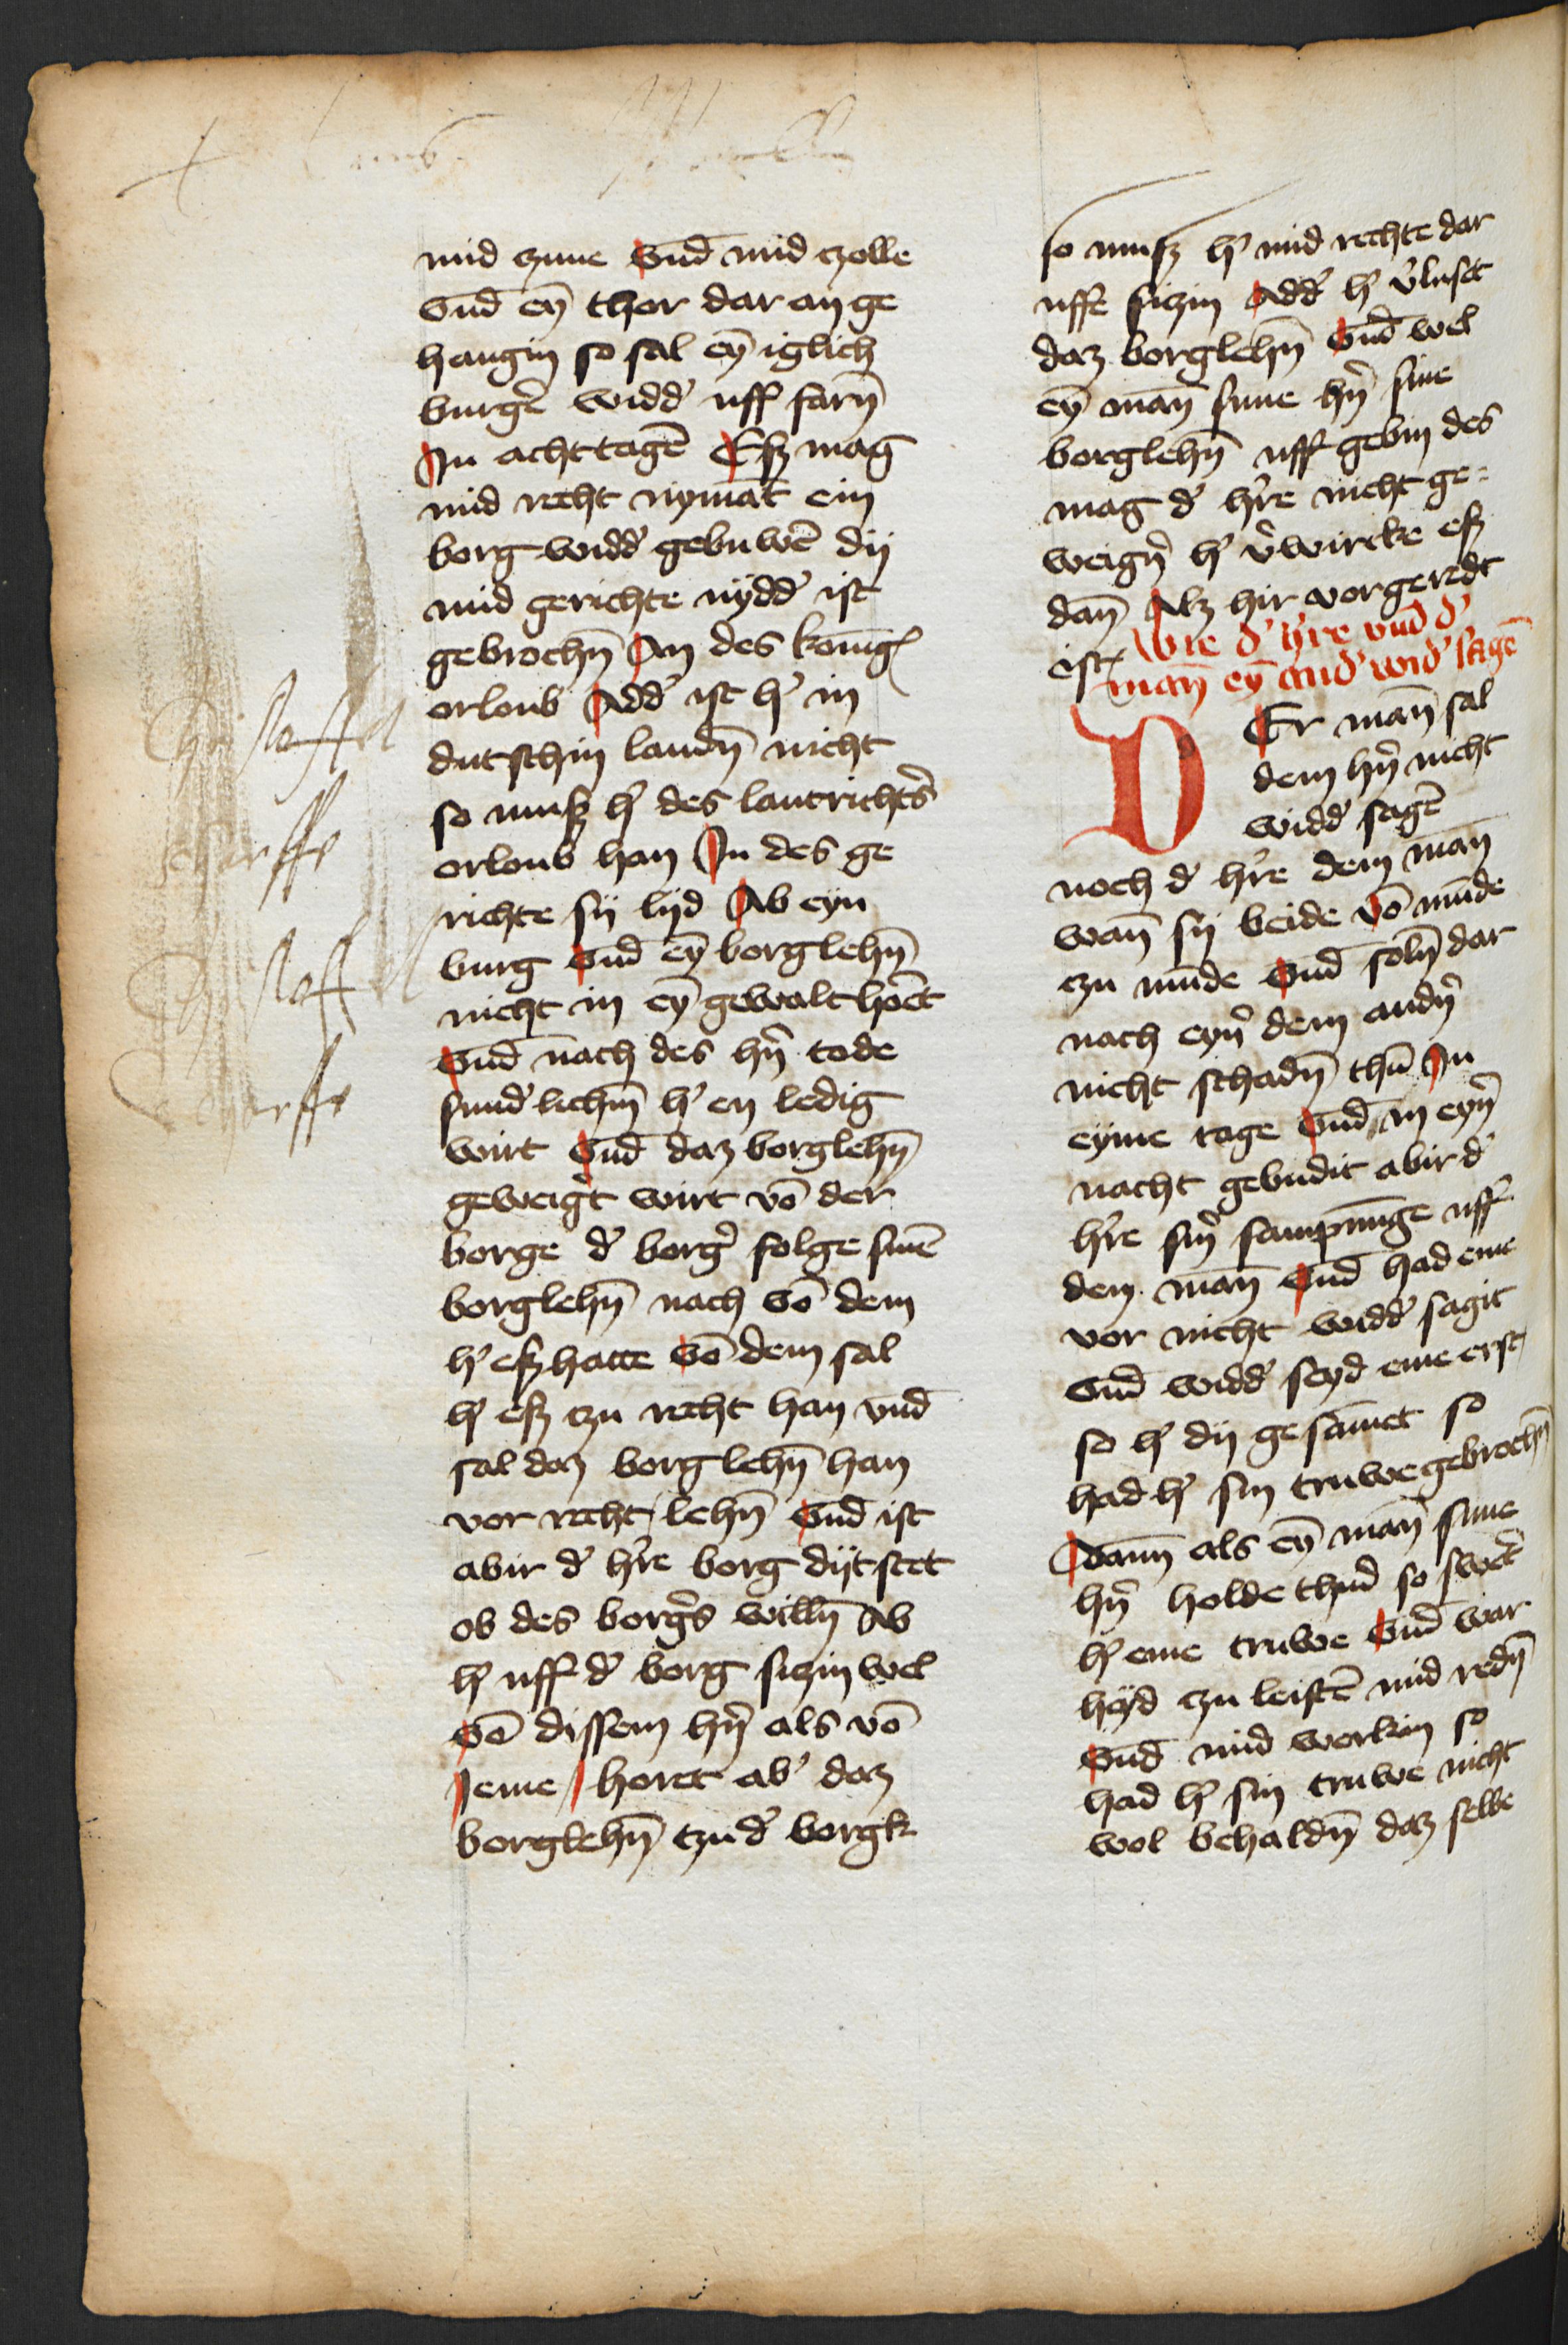 mid czune vnd̄ mid czolle
vnd̄ eȳ thor dar an ge
hangin so sal eȳ iglich
burgˀ widdˀ uff farn̄
In acht tagē Eſz mag
mid recht nymāt ein
borg widdˀ gebuwē dij
mid gerichte nyddˀ ist
gebrochn̄ An des konig
orloub Addˀ ist hˀ in
dutschin landn̄ nicht
so muſz hˀ des lantrichtˀs
orloub han In des ge
richte sij lijd Ab eyn
burg vnd̄ eȳ borglehn̄
nicht in eȳ gewalt hoˀet
vnd̄ nach des hˀn tode
sundˀ lichin hˀ en ledig
wirt vnd̄ daz borglehn̄
geweigˀt wirt vō der
borge dˀ borgˀ folge sinē
borglehn̄ nach vō dem
hˀ eſz hatte vō dem sal
hˀ eſz tzu recht han vnd̄
sal daz borglehn̄ han
vor recht lehn̄ vnd̄ ist
abir dˀ hˀre borg dijt stet
ob des borgˀs willn̄ Ab
hˀ uff dˀ borg siczin wel
vō dissem hˀn als vō
Jeme horet abˀ daz
borglehn̄ tzu dˀ borgk
Christoffel
scharffe
Christoffel
Scharffe
so muſz hˀ mid rechte dar
uffe siczin Addˀ hˀ vˀluset
daz borglehn̄ vnd̄ wel
eȳ man̄ sime hˀn sine
borglehn̄ uff gebin des
mag dˀ hˀre nicht ge-
weigˀn hˀ vˀwircke eſz
dan̄ Alz hir vor geredt
ist
Wie dˀ hˀre vnd̄ dˀ
man̄ eȳ andˀ widˀ sagē
DEr man̄ sal
dem hˀn nicht
widdˀ sagē
noch dˀ hˀre dem man̄
wan̄ sij beide vō munde
czu munde vnd̄ soln̄ dar
nach eynˀ dem andˀn
nicht schadn̄ thū In
eyme tage vnd̄ in eynˀ
nacht gebudit abir dˀ
hˀre sinˀ sampnunge uff
dem man̄ vnd̄ had eme
vor nicht widdˀ sagit
vnd̄ widdˀ seyd eme erst
so hˀ dij gesāmet so
had hˀ sin truwe gebrochn̄
Wann als eȳ man̄ sime
hˀn holde thud so swˀet
hˀ eme truwe vnd̄ war
heyd czu leistē mid redn̄
vnd̄ mid workin so
had hˀ sin truwe nicht
wol behaldn̄ daz selbe